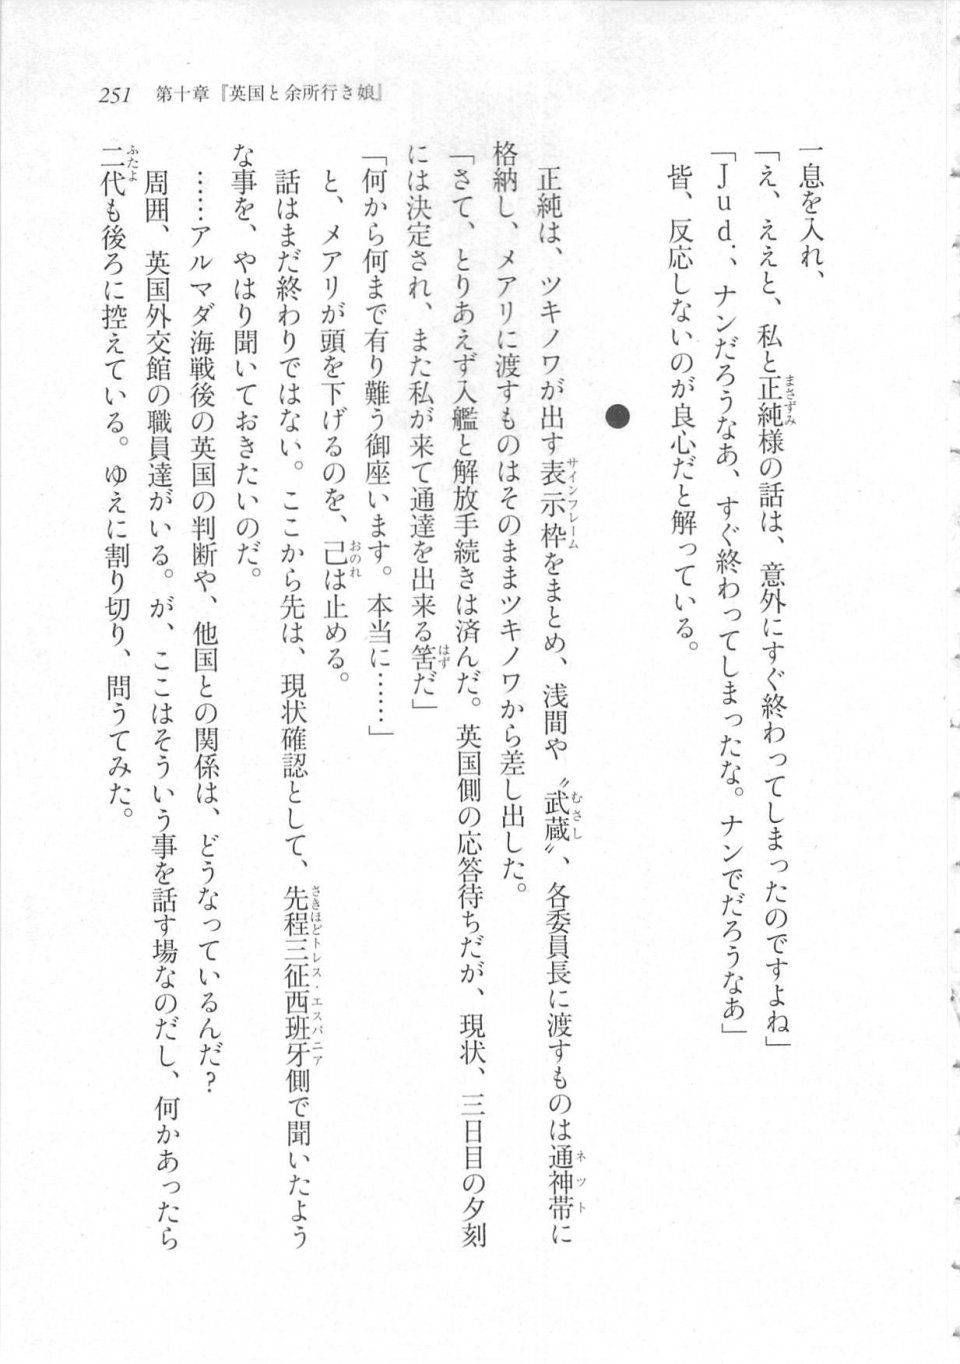 251　第十章『英国と余所行き娘』
一息を入れ、
「え、ええと、私と正純様の話は、意外にすぐ終わってしまったのですよね」
「Jud.、ナンだろうなあ、すぐ終わってしまったな。ナンでだろうなあ」
皆、反応しないのが良心だと解っている。
●
正純は、ツキノワが出す表示枠をまとめ、浅間や〝武蔵〟、各委員長に渡すものは通神帯に
格納し、メアリに渡すものはそのままツキノワから差し出した。
「さて、とりあえず入艦と解放手続きは済んだ。英国側の応答待ちだが、現状、三日目の夕刻
には決定され、また私が来て通達を出来る筈だ」
「何から何まで有り難う御座います。本当に……」
と、メアリが頭を下げるのを、己は止める。
話はまだ終わりではない。ここから先は、現状確認として、先程三征西班牙側で聞いたよう
な事を、やはり聞いておきたいのだ。
……アルマダ海戦後の英国の判断や、他国との関係は、どうなっているんだ？
周囲、英国外交館の職員達がいる。が、ここはそういう事を話す場なのだし、何かあったら
二代も後ろに控えている。ゆえに割り切り、問うてみた。